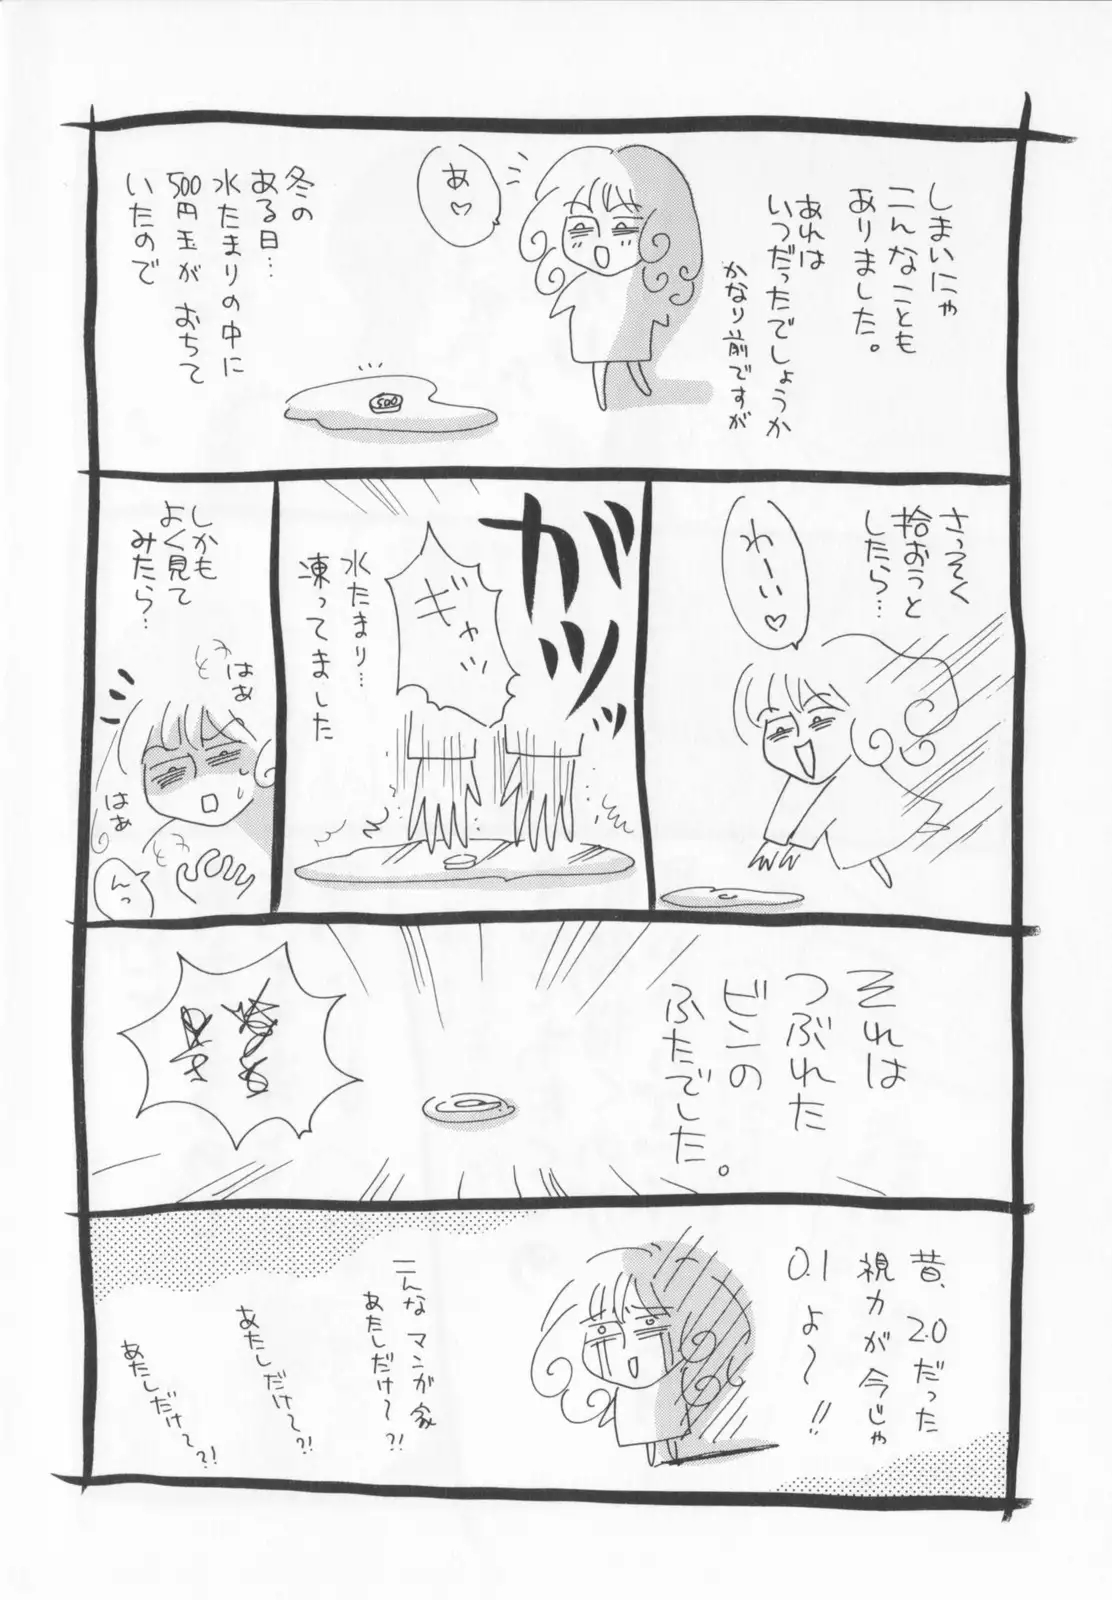 しまいにゃ
こんなことも
ありました。
あれは
いつだったでしょうか
かなり前ですが
あ♡
冬の
ある日…
水たまりの中に
500円玉が おちて
いたので
500
さっそく
拾おうと
したら…
わーい♡
ガガッツッ
ギャッ
水たまり…
凍ってました
しかも
よく見て
みたら…
はぁ
はぁ
んっ
それは
つぶれた
ビンの
ふたでした。
昔、2.0だった
視力が今じゃ
0.1よ〜!!
こんなマンガ家
あたしだけ〜?!
あたしだけ〜?!
あたしだけ〜?!